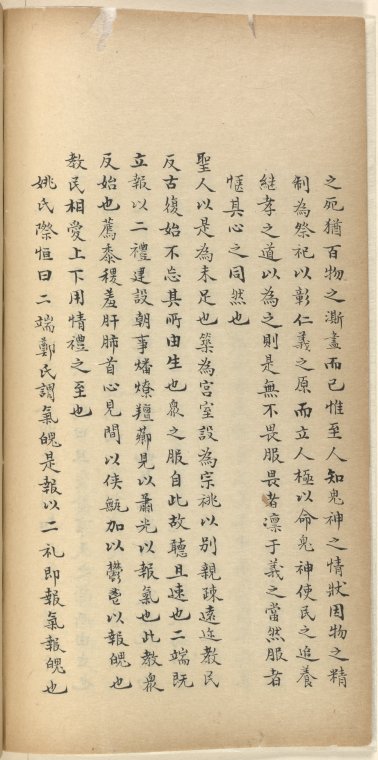 之死猶百物之澌盡而已惟至人知鬼神之情狀因物之精
制為祭祀以彰仁義之原而立人極以命鬼神使民之追養
繼孝之道以為之則是無不畏服畏者凜于義之當然服者
愜其心之同然也
聖人以是為未足也築為宮室設為宗祧以別親疎遠迩教民
反古復始不忘其所由生也衆之服自此故聽且速也二端既
立報以二禮建設朝事燔燎羶薌見以蕭光以報氣也此教衆
反始也薦黍稷羞肝肺首心見間以俠甒加以鬱鬯以報魄也
教民相愛上下用情禮之至也
姚氏際恒曰二端鄭氏謂氣魄是報以二礼即報氣報魄也